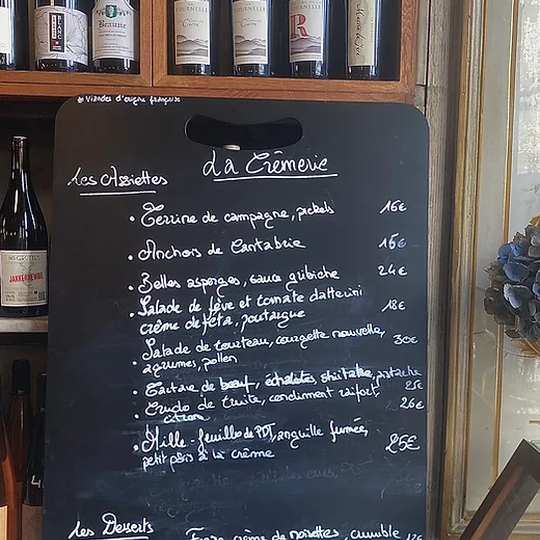 BLANC
Beaune
TOURNELLE
TOURNELLE
R
* Viandes d'origine française
La Crèmerie
Les Assiettes
• Terrine de campagne, pickels 16€
• Anchois de Cantabrie 16€
• Belles asperges, sauce gribiche 24€
• Salade de fève et tomate datterini 18€
crème de féta, poutargue
• Salade de tourteau, courgette nouvelle, 30€
agrumes, pollen
• Tartare de bœuf, échalotes, shiitake, pistache 25€
• Crudo de truite, condiment raifort, 26€
citron
• Mille-feuilles de PDT, anguille fumée, 25€
petit pois à la crème
Les Desserts
crème de noisettes, crumble 12€